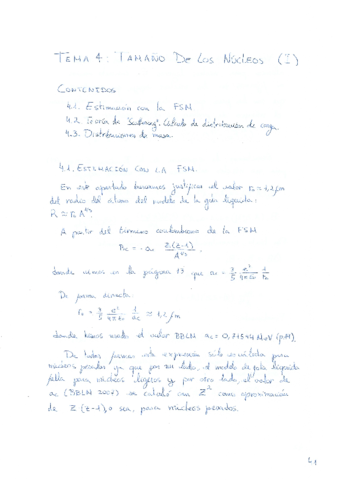 TEMA 4: TAMAÑO DE LOS NÚCLEOS (I)
CONTENIDOS
4.1. Estimación con la FSM
4.2. Teoría de "Scattering". Cálculo de distribución de carga
4.3. Distribuciones de masa.
4.1. ESTIMACIÓN CON LA FSM.
En este apartado buscamos justificar el valor r₀ = 1,2 fm
del radio del átomo del modelo de la gota líquida:
R ≈ r₀ A^{1/3}
A partir del término coulombiano de la FSM
B_c = - a_c Z(Z-1)/A^{1/3}
donde vimos en la página 13 que a_c = 3/5 e²/4πε₀ 1/r₀
De forma directa
r₀ = 3/5 e²/4πε₀ 1/a_c ≈ 1,2 fm
donde hemos usado el valor BBLM a_c = 0,71544 MeV
De todas formas esta expresión solo es válida para
núcleos pesados ya que por un lado, el modelo de gota líquida
falla para núcleos ligeros y por otro lado, el valor de
a_c (BBLM 2007) se calculó con Z² como aproximación
de Z(Z-1) o sea, para núcleos pesados.